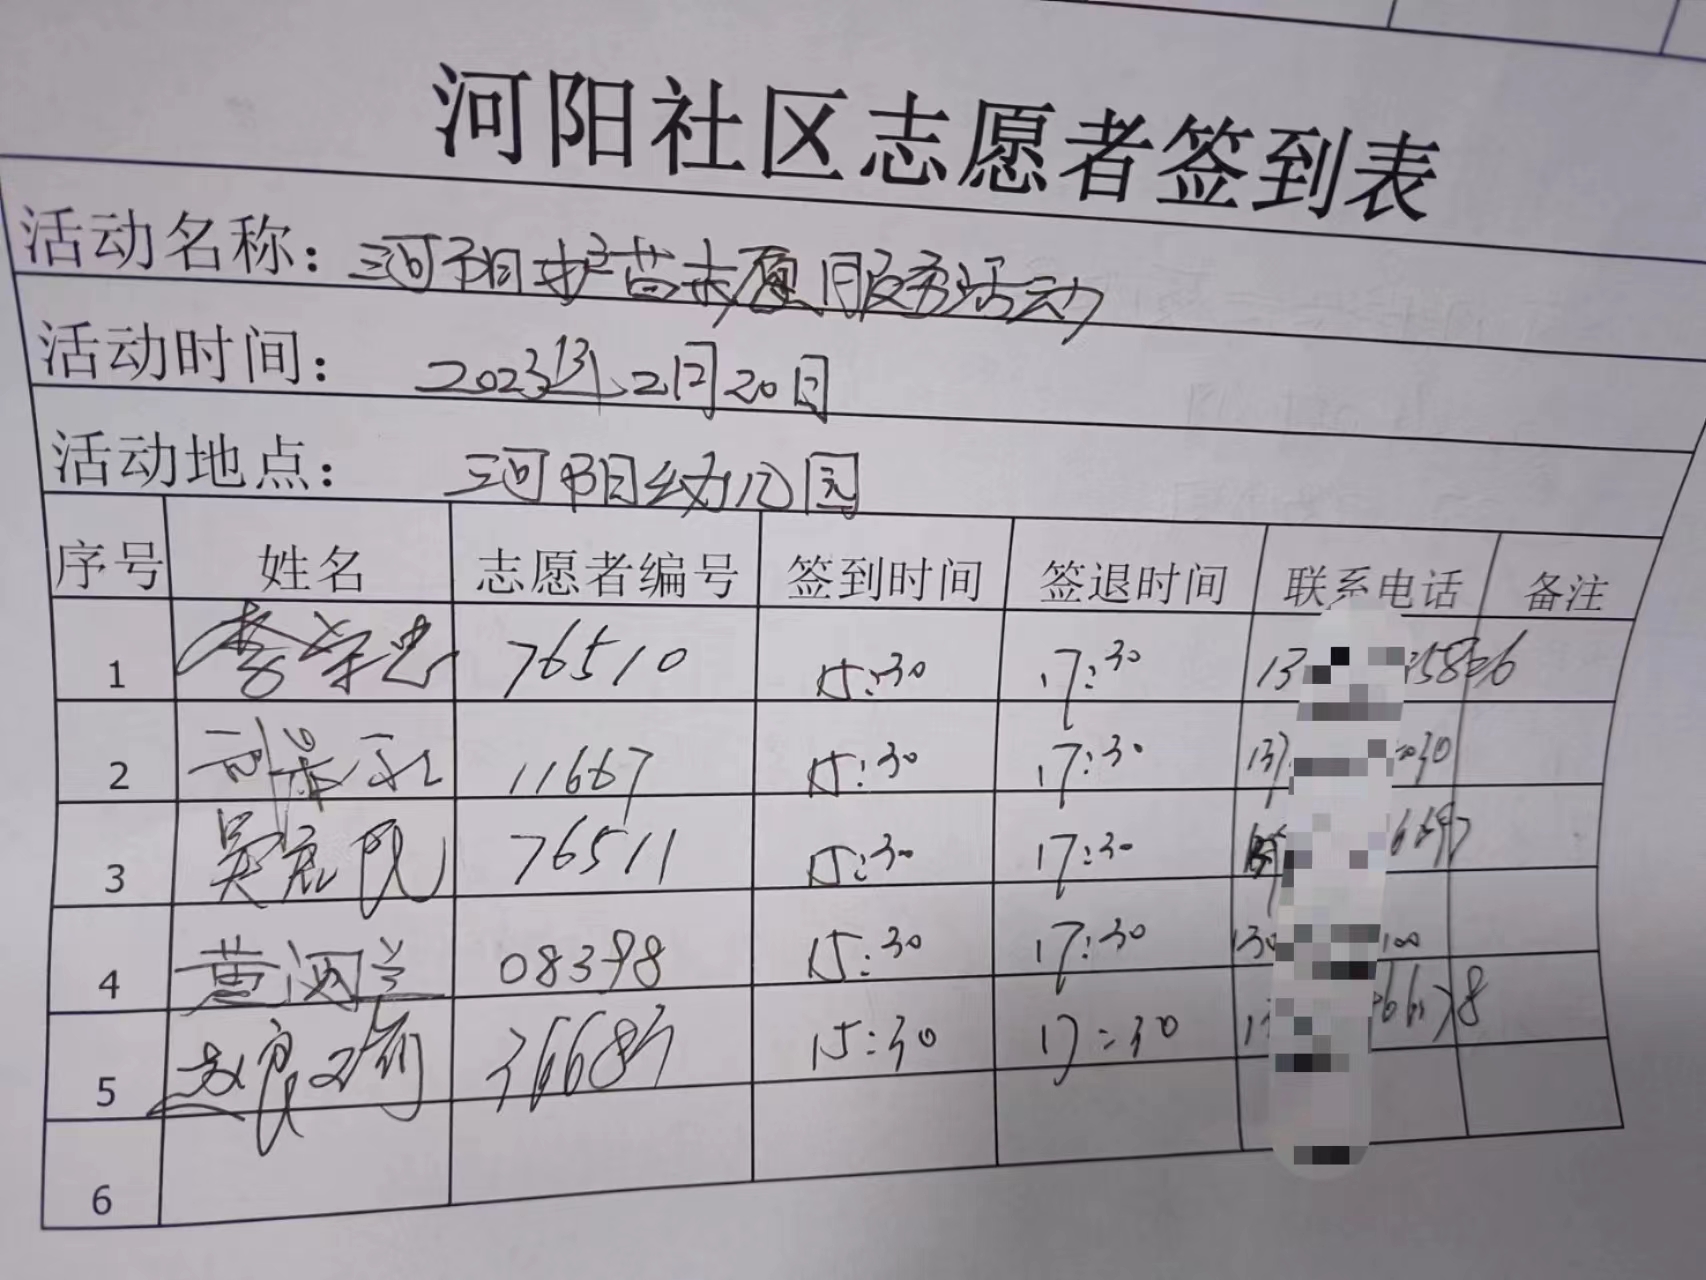 河阳社区志愿者签到表
活动名称：河阳护苗志愿服务活动
活动时间：2023年12月20日
活动地点：河阳幼儿园
序号 姓名 志愿者编号 签到时间 签退时间 联系电话 备注
1 李学忠 76510 15:30 17:30 13
2 11667 15:30 17:30 137
3 吴宏民 76511 15:30 17:30
4 黄洄兰 08398 15:30 17:30 130 100
5 赵良瑜 36683 15:30 17:30 78
6